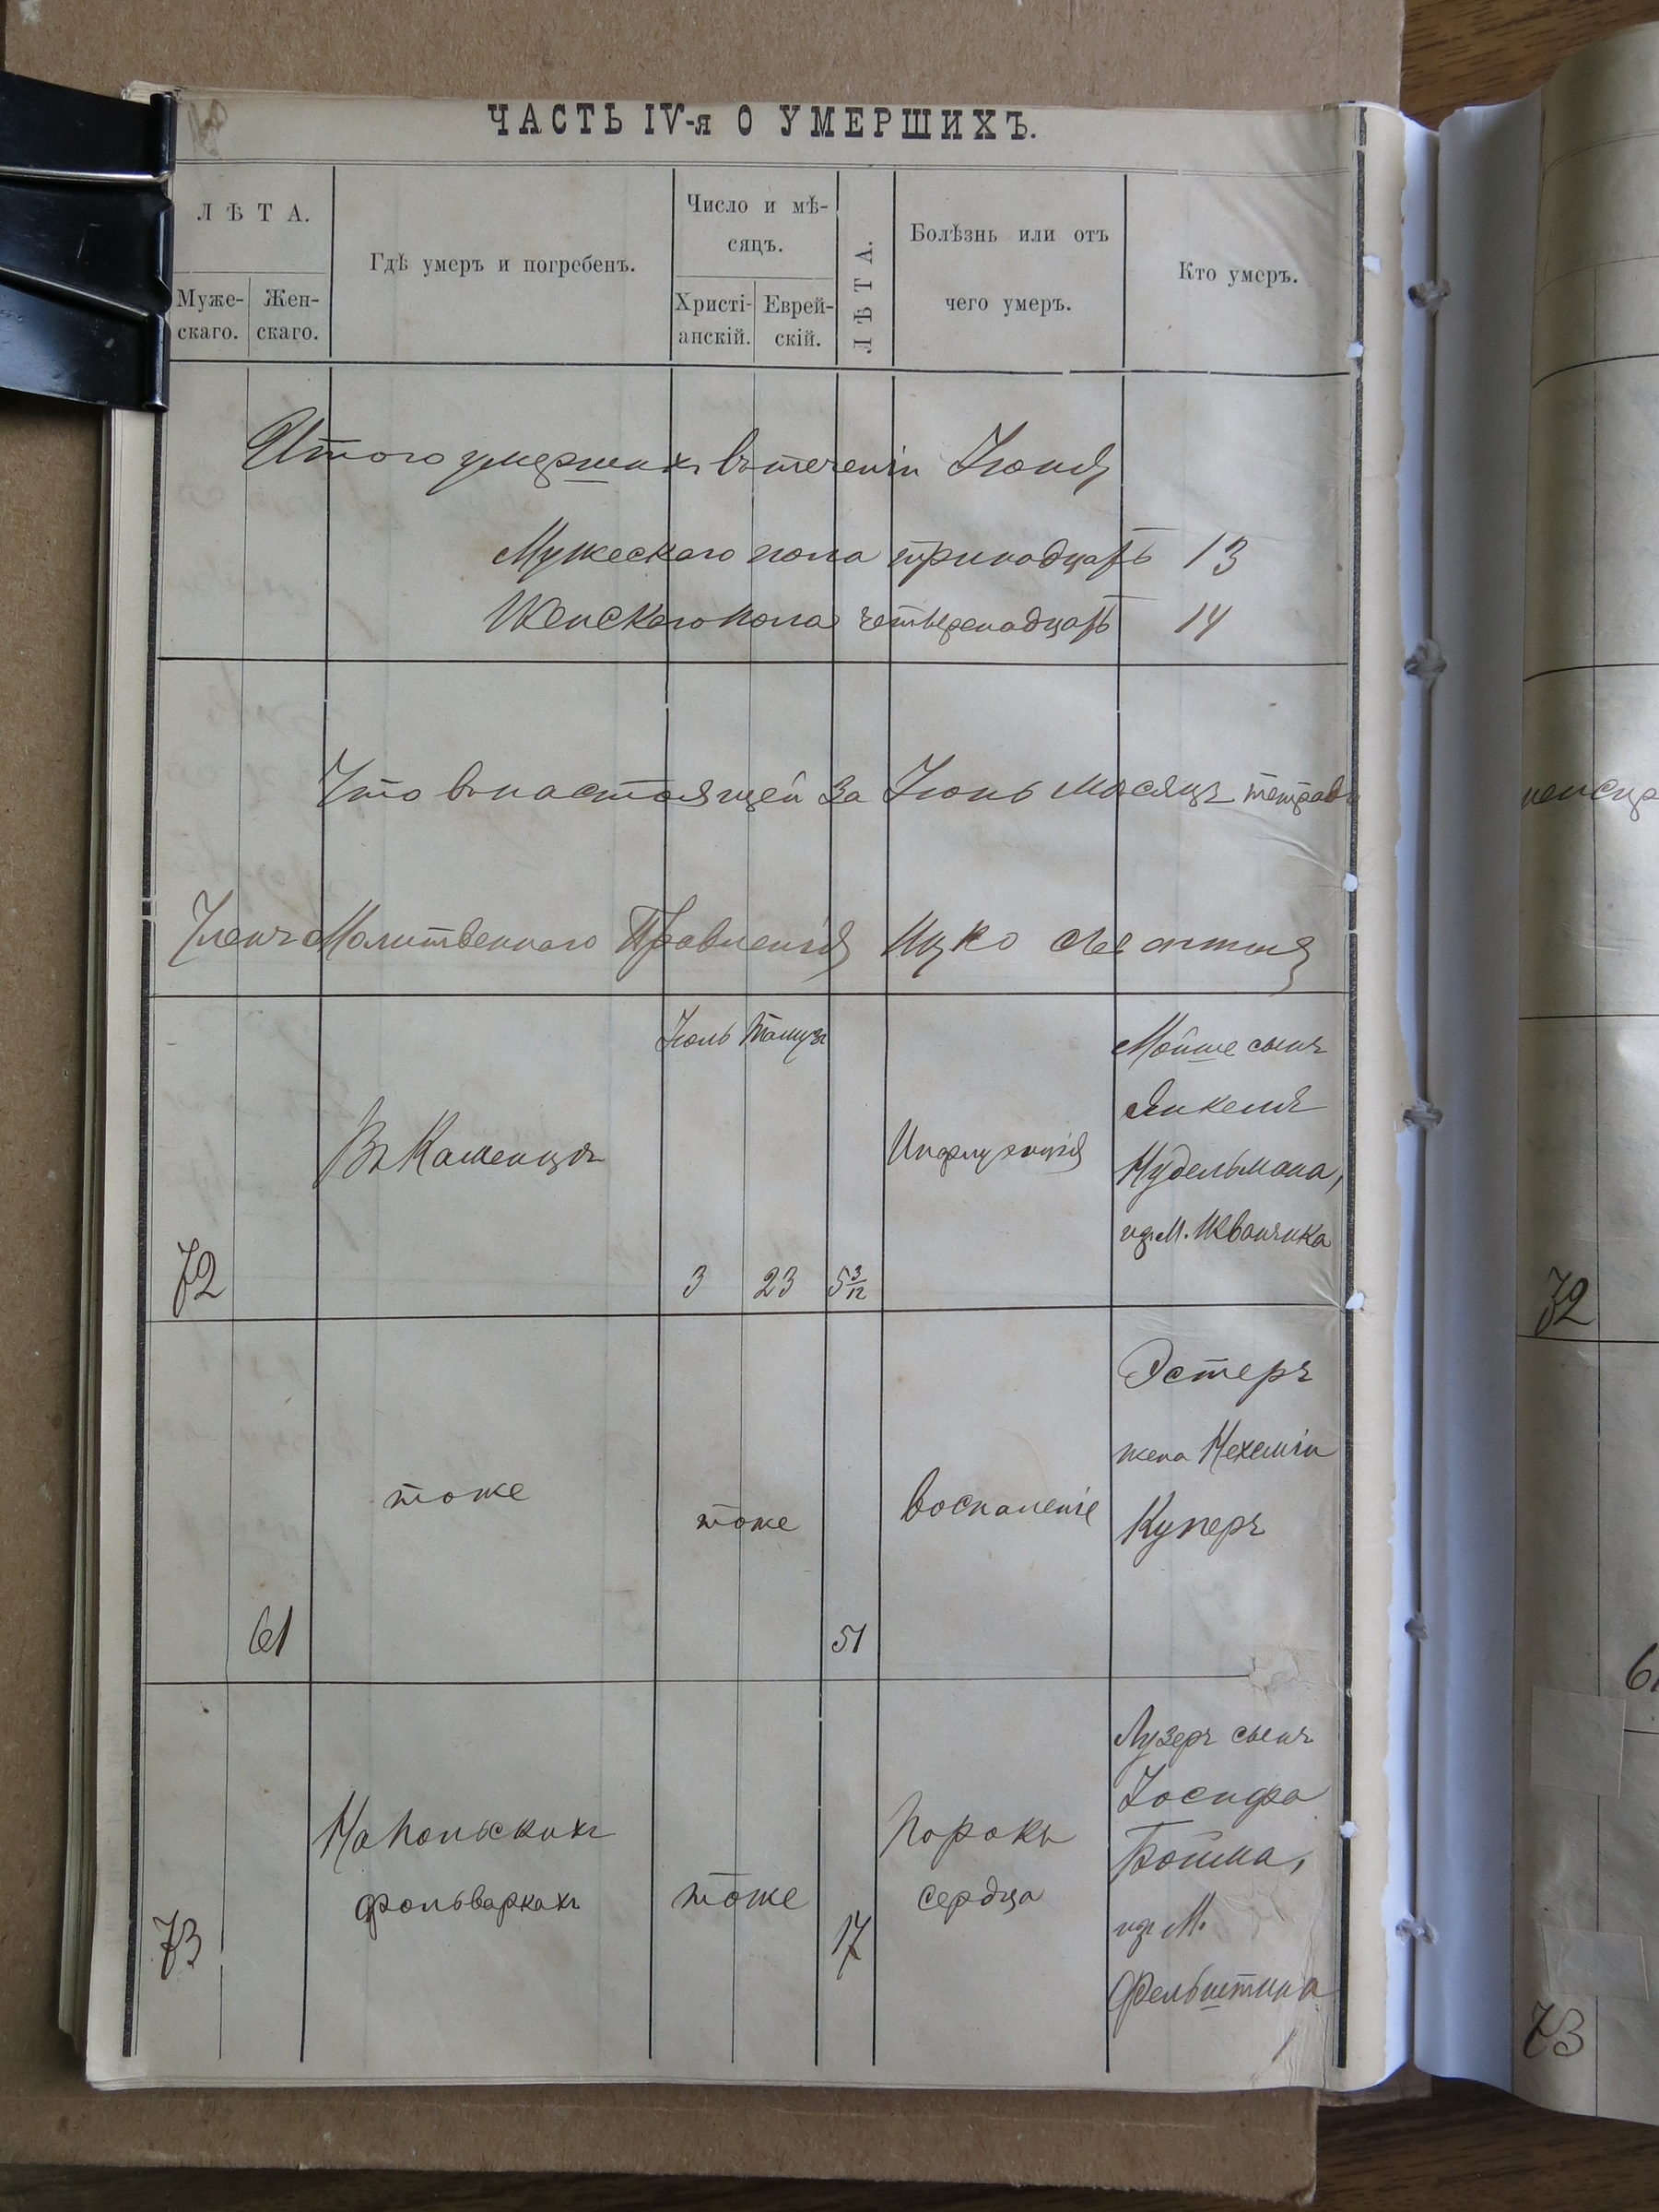 ЧАСТЬ IV-я О УМЕРШИХЪ.
ЛѢТА.
Муже-
скаго.
Жен-
скаго.
Гдѣ умеръ и погребенъ.
Число и мѣ-
сяцъ.
Христі-
анскій.
Еврей-
скій.
ЛѢТА.
Болѣзнь или отъ
чего умеръ.
Кто умеръ.
Итого умершихъ втеченіи Іюня
Мужескаго пола тринадцать 13
Женскаго пола четыренадцать 14
Что внастоящей за Іюнь мѣсяцъ тетради
Членъ Молитвеннаго Правленія Ицко
72
Въ Каменцѣ
Іюль Тамузъ
3 23
5 3/12
Инфлуэнція
Мойше сынъ
Янкеля
Нудельмана,
изъ М. Жванчика
61
тоже
тоже
51
Воспаленіе
Эстеръ
жена Нехеміи
Куперъ
73
На Польскихъ
фольваркахъ
тоже
17
Порокъ
сердца
Лузеръ сынъ
Іосифа
Бойма,
изъ М.
Фельштина
72
61
73